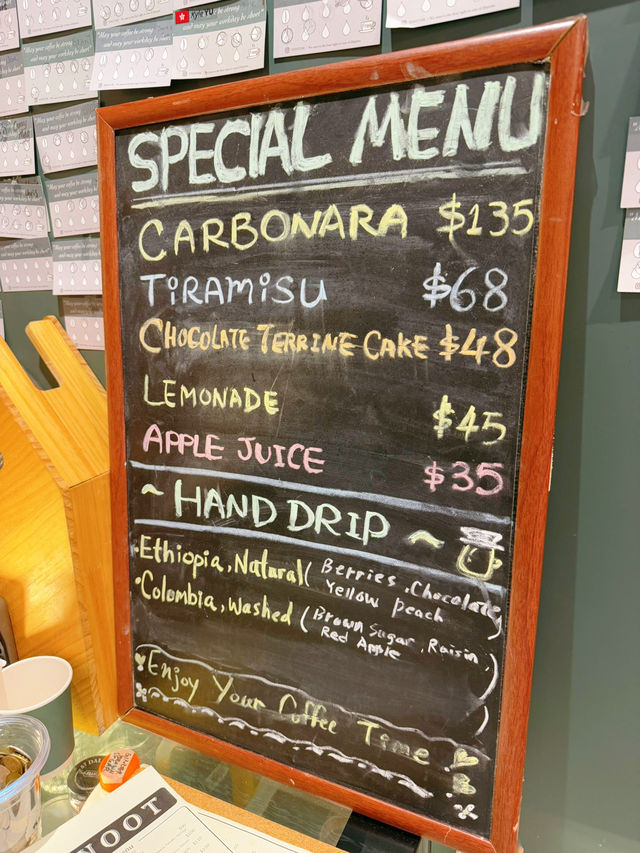 May your coffee be strong
and may your workday be short!
SPECIAL MENU
CARBONARA $135
TiRAMiSU $68
CHOCOLATE TERRINE CAKE $48
LEMONADE $45
APPLE JUICE $35
~ HAND DRIP ~
·Ethiopia, Natural ( Berries, Chocolate,
Yellow peach )
·Colombia, Washed ( Brown Sugar, Raisin,
Red Apple )
Enjoy Your Coffee Time
NOOT